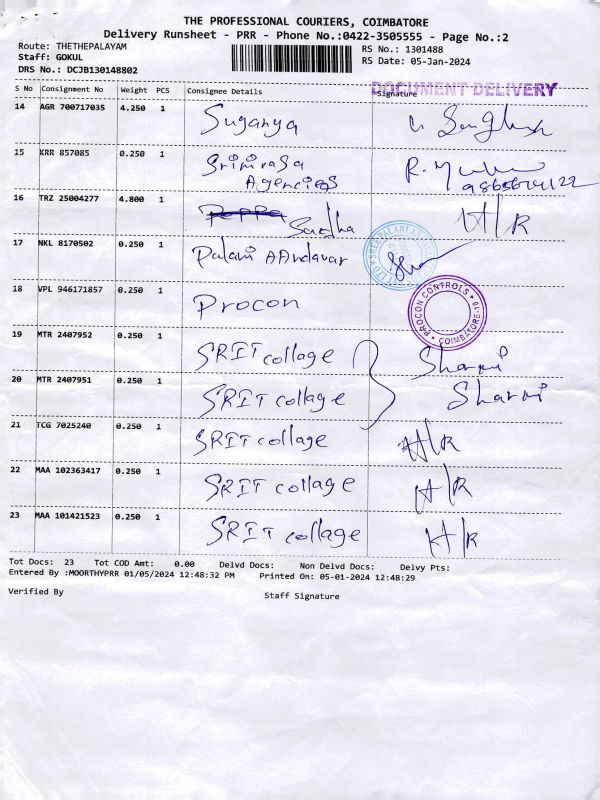 THE PROFESSIONAL COURIERS, COIMBATORE
Delivery Runsheet - PRR - Phone No.:0422-3505555 - Page No.:2
Route: THETHEPALAYAM
RS No.: 1301488
Staff: GOKUL
RS Date: 05-Jan-2024
DRS No.: DCJB130148802
DOCUMENT DELIVERY
S No Consignment No Weight PCS Consignee Details Signature
14 AGR 700717035 4.250 1 Suganya
15 KRR 857085 0.250 1 Srinivasa
Agencies
16 TRZ 25004277 4.800 1 Sandha H/R
17 NKL 8170502 0.250 1 Palani AAndavar
18 VPL 946171857 0.250 1 Procon
PROCON CONTROLS
19 MTR 2407952 0.250 1 SRIT collage Sharmi
20 MTR 2407951 0.250 1 SRIT collage Sharmi
21 TCG 7025240 0.250 1 SRIT collage H/R
22 MAA 102363417 0.250 1 SRIT collage H/R
23 MAA 101421523 0.250 1 SRIT collage H/R
Tot Docs: 23 Tot COD Amt: 0.00 Delvd Docs: Non Delvd Docs: Delvy Pts:
Entered By :MOORTHYPRR 01/05/2024 12:48:32 PM Printed On: 05-01-2024 12:48:29
Verified By Staff Signature